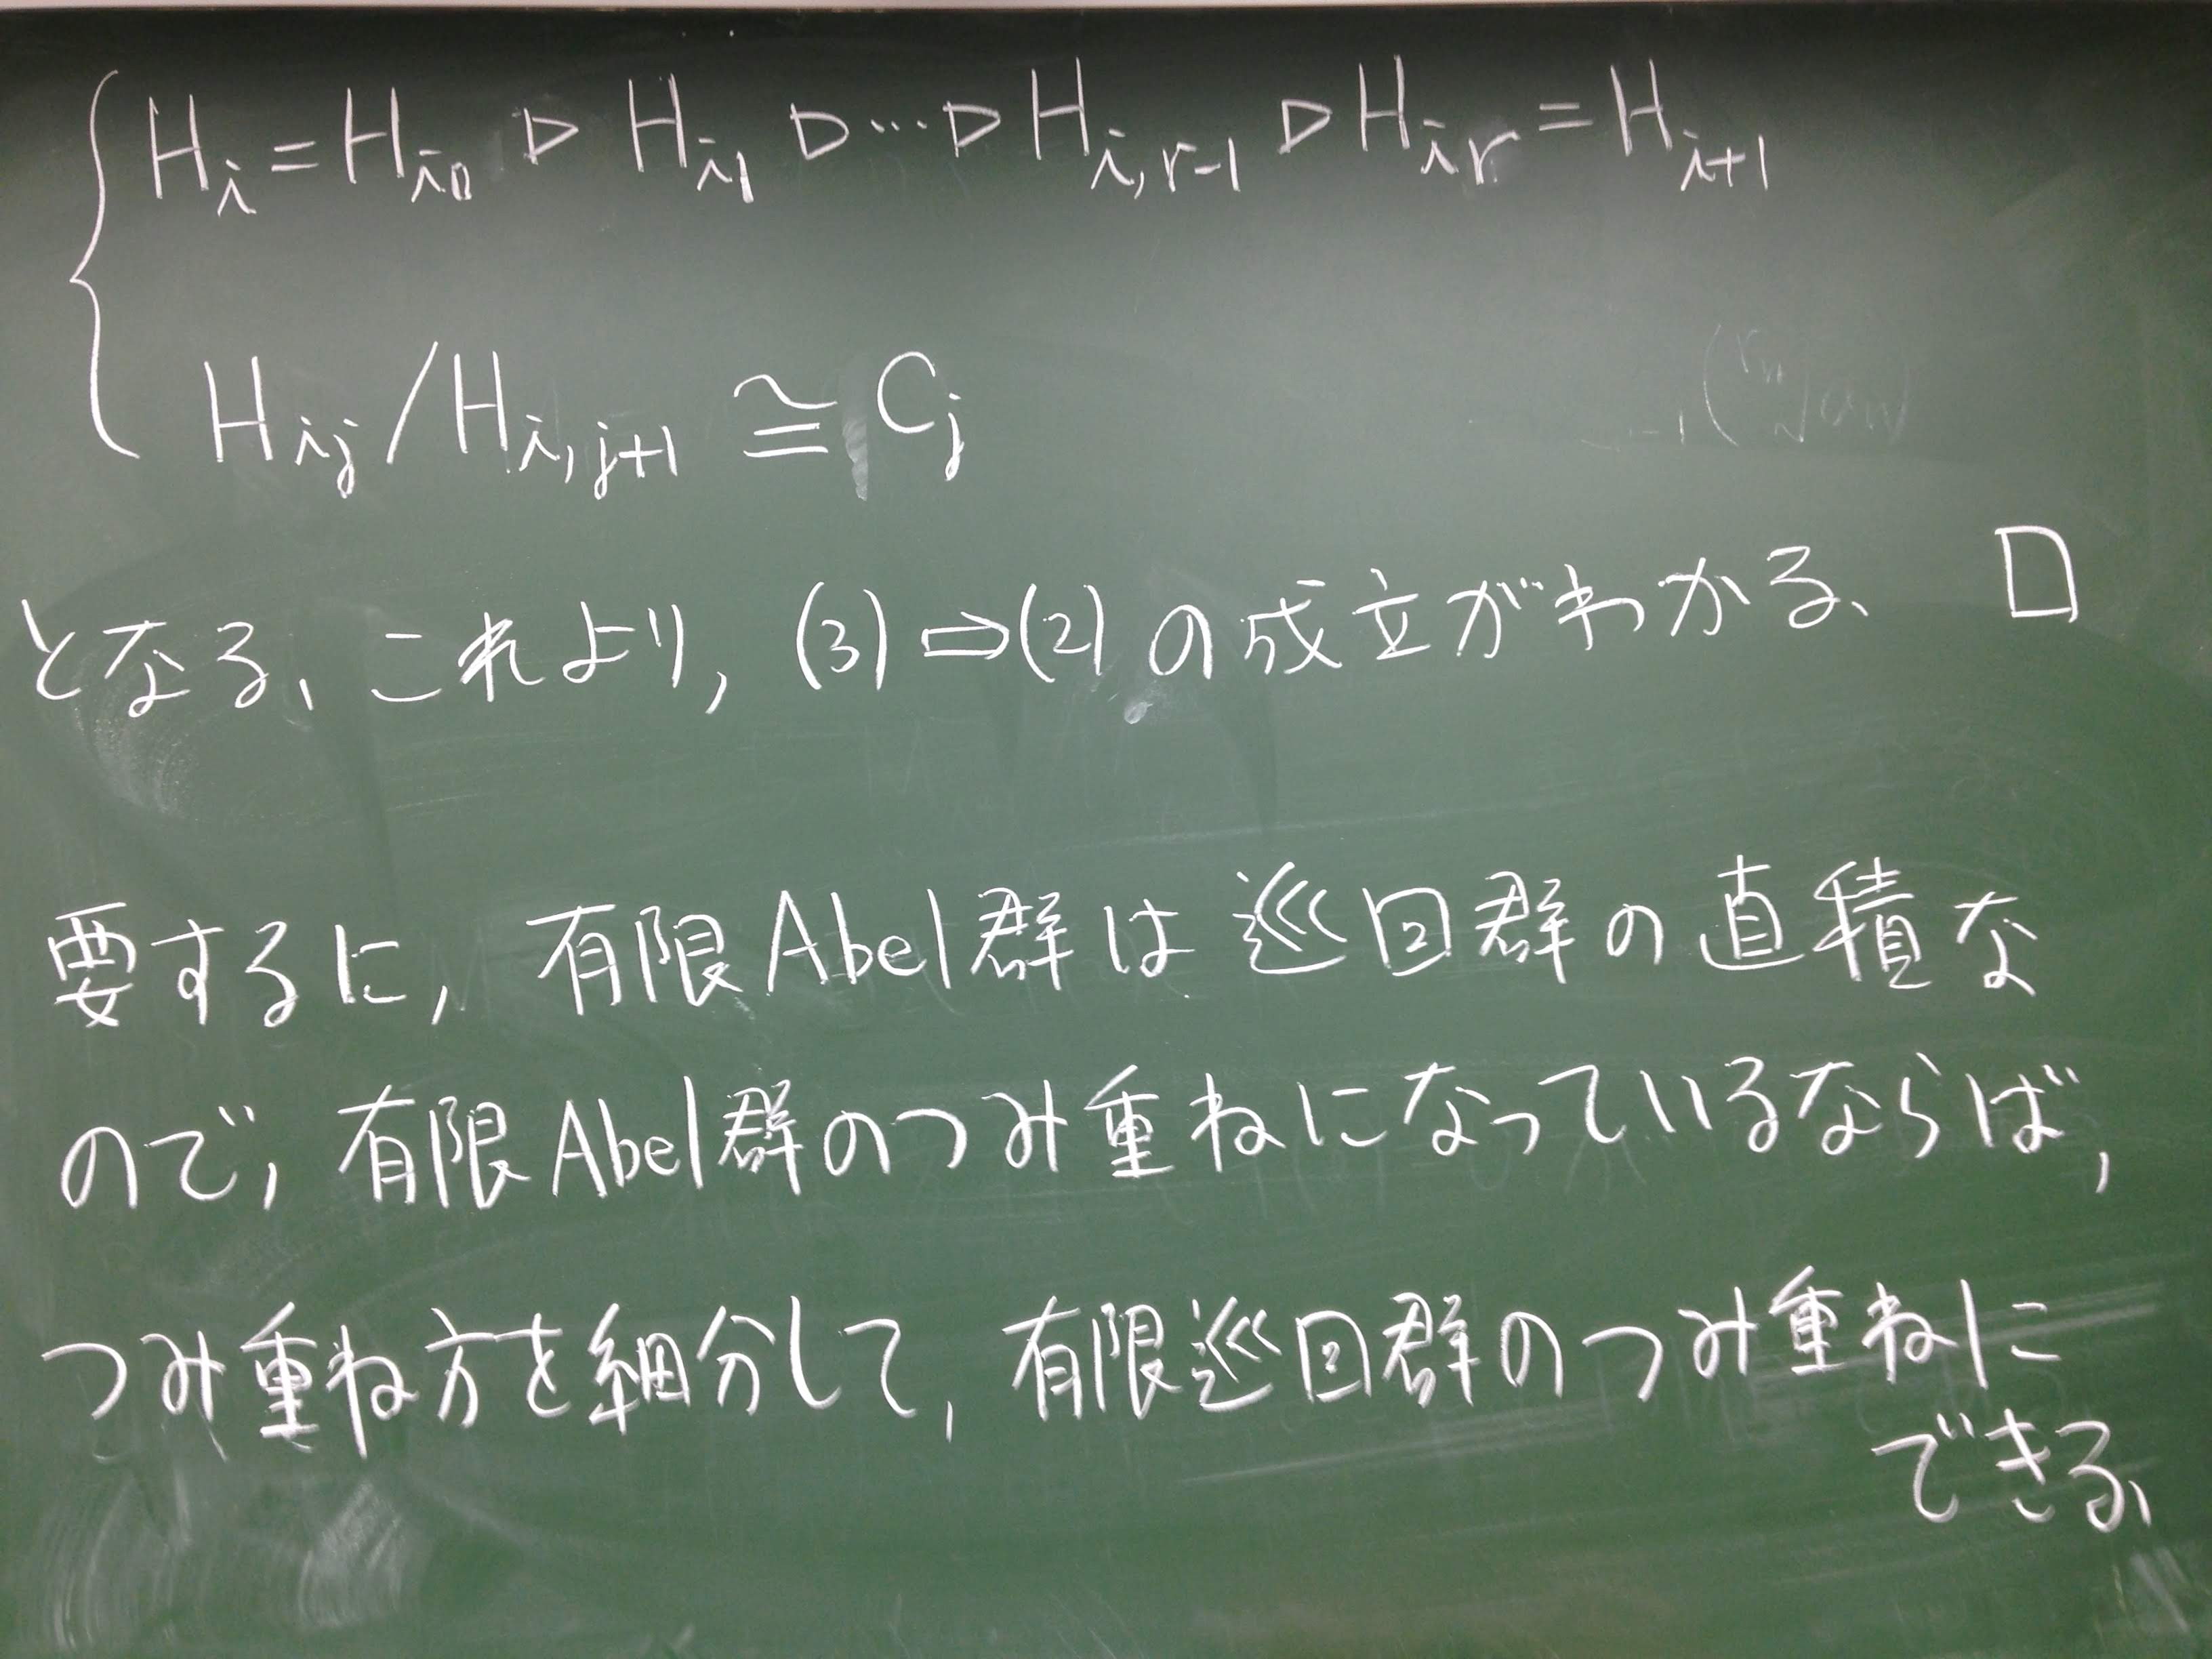 H_i = H_{i0} ▷ H_{i1} ▷ … ▷ H_{i,r-1} ▷ H_{ir} = H_{i+1}
H_{ij} / H_{i,j+1} ≅ C_j
となる、これより, (3) ⇒ (2) の成立がわかる、 □
要するに, 有限Abel群は巡回群の直積な
ので, 有限Abel群のつみ重ねになっているならば,
つみ重ね方を細分して, 有限巡回群のつみ重ねに
できる、